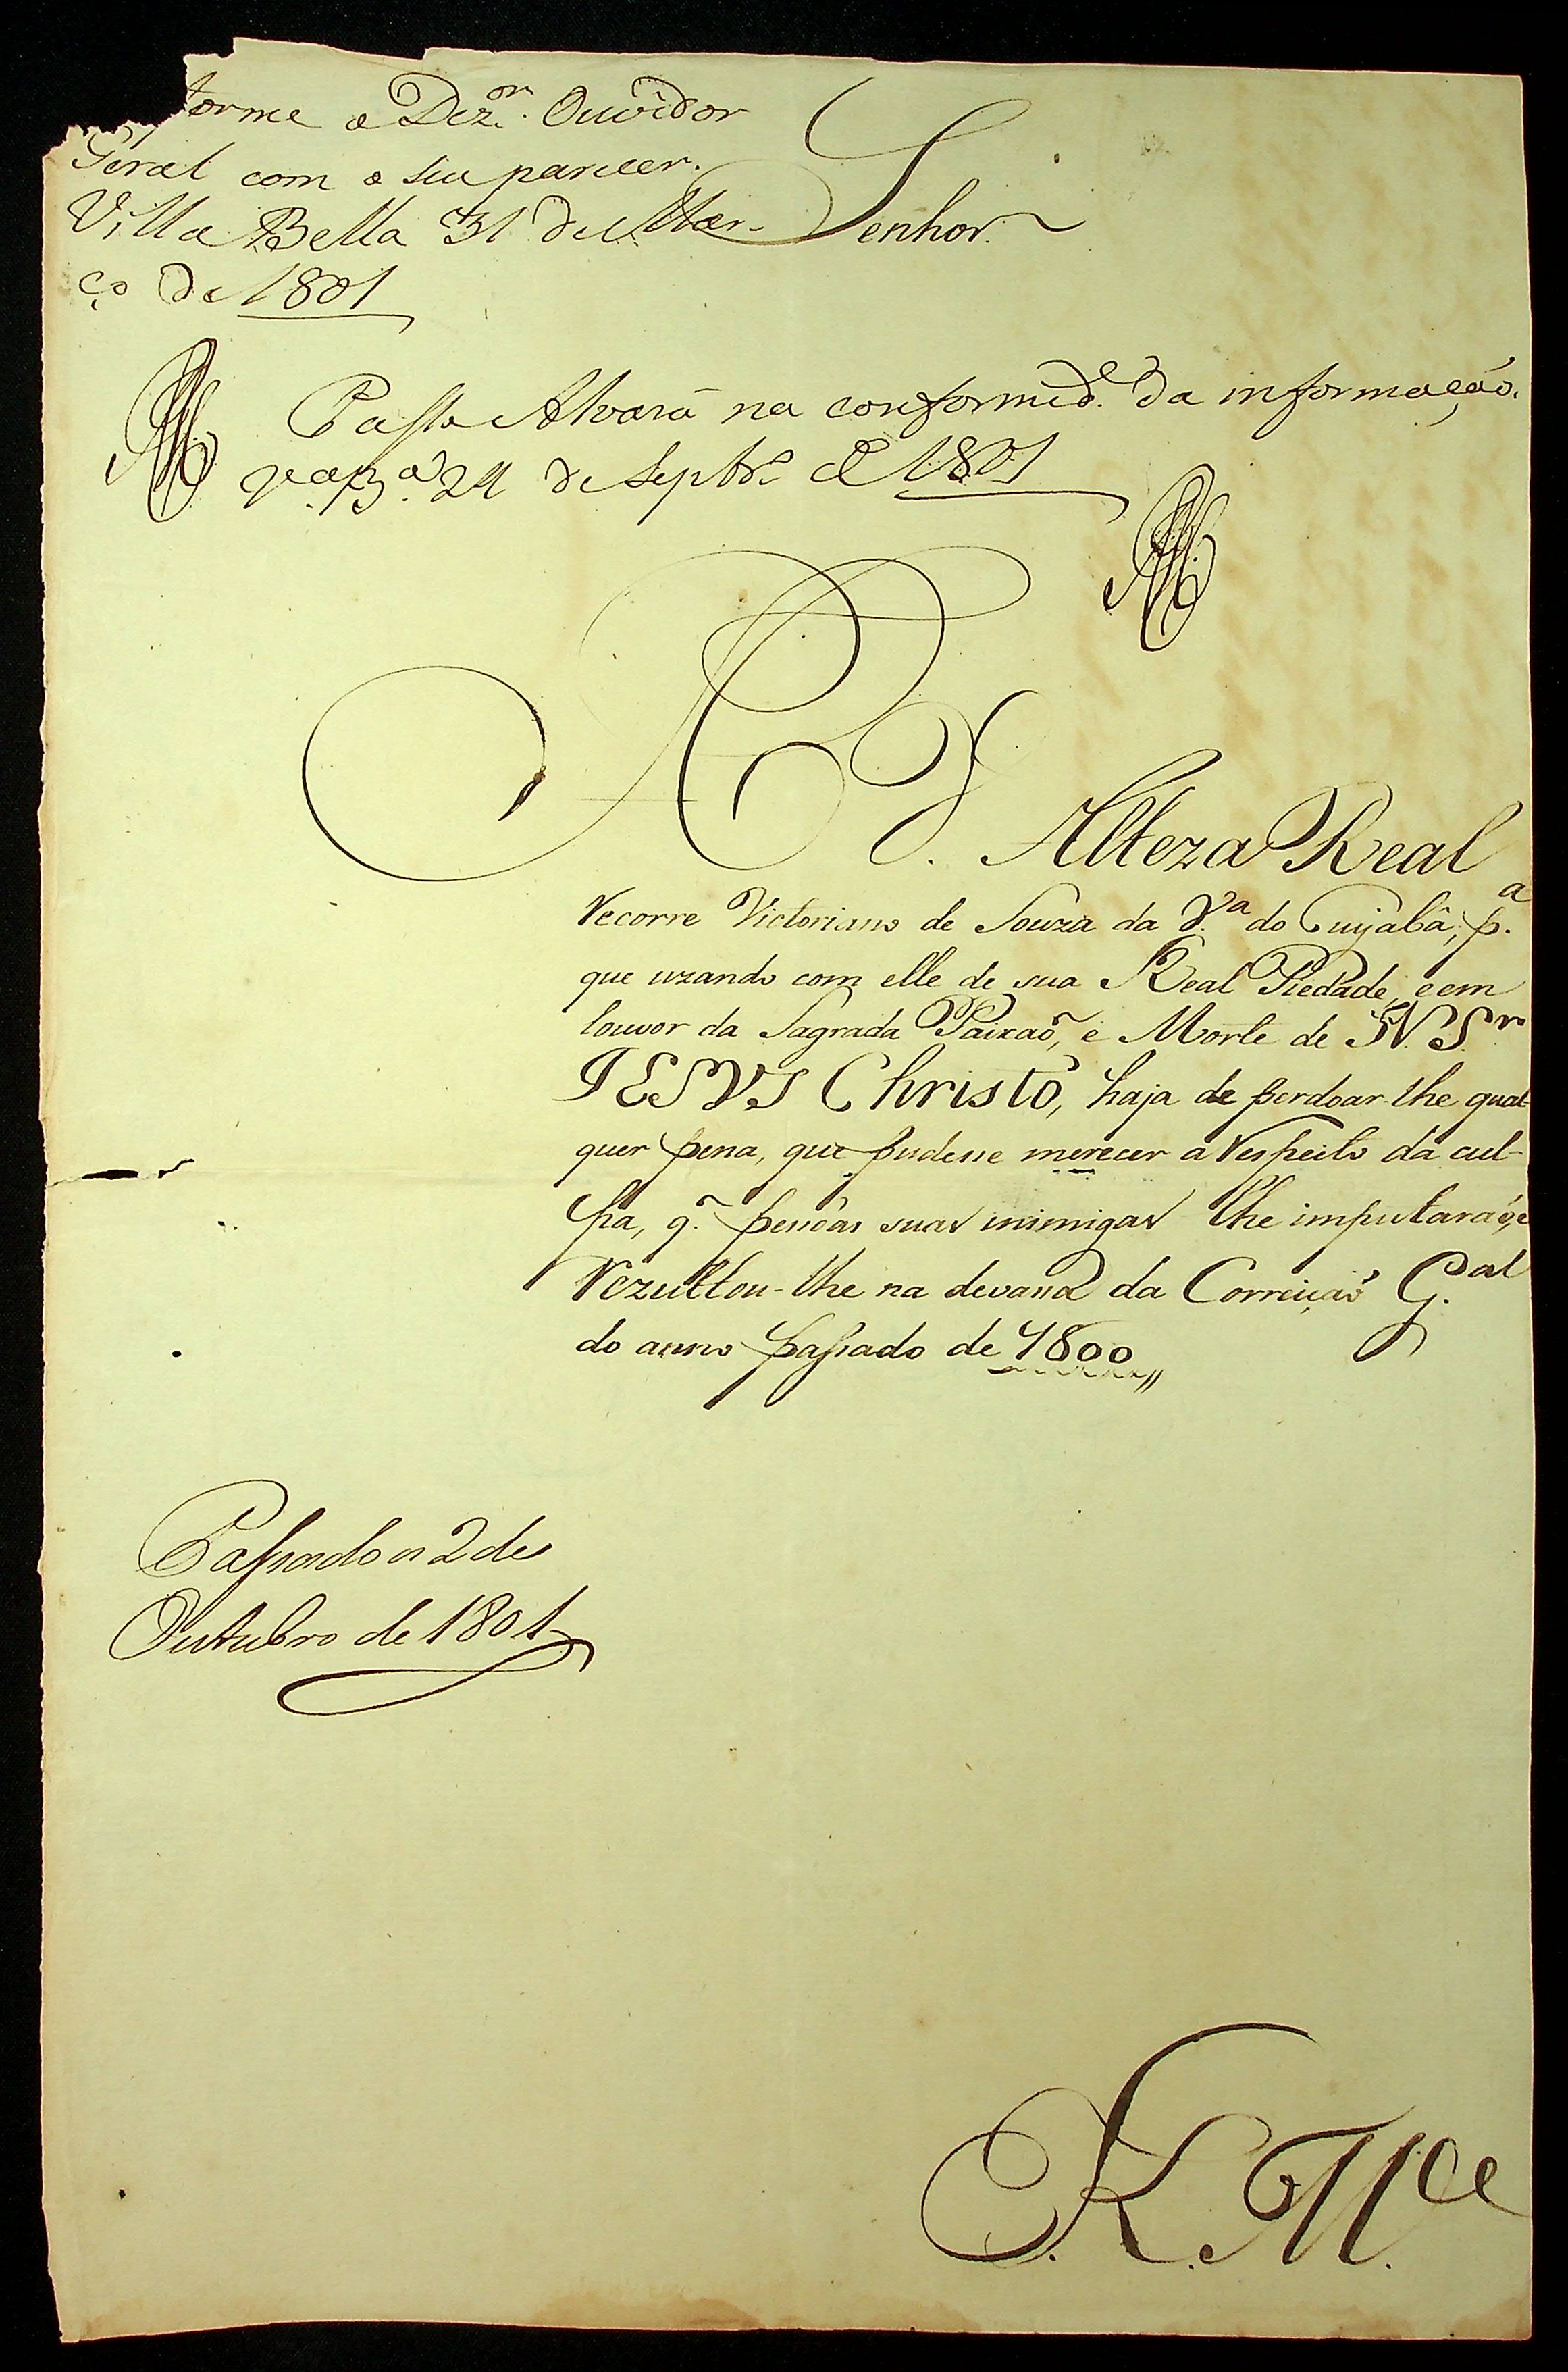 forme o Dez.or Ouvidor
Geral com o seu parecer.
Villa Bella 31 de Mar-
ço de 1801
Senhor.
Passe Alvará na conformid.e da informação.
V.a B.a 24 de Septbr.o de 1801
A V. Alteza Real
recorre Victoriano de Souza da V.a do Cuyabâ, p.a
que uzando com elle de sua Real Piedade, e em
louvor da Sagrada Paixaõ, e Morte de N. S.r
JESUS Christo, haja de perdoar-lhe qual-
quer pena, que pudesse merecer a respeito da cul-
pa, q.̃ pessôas suas inimigas lhe imputaraõ, e
rezultou-lhe na devassa da Correiçaõ G.al
do anno passado de 1800
Passado a 2 de
Outubro de 1801
E. R. M.ce